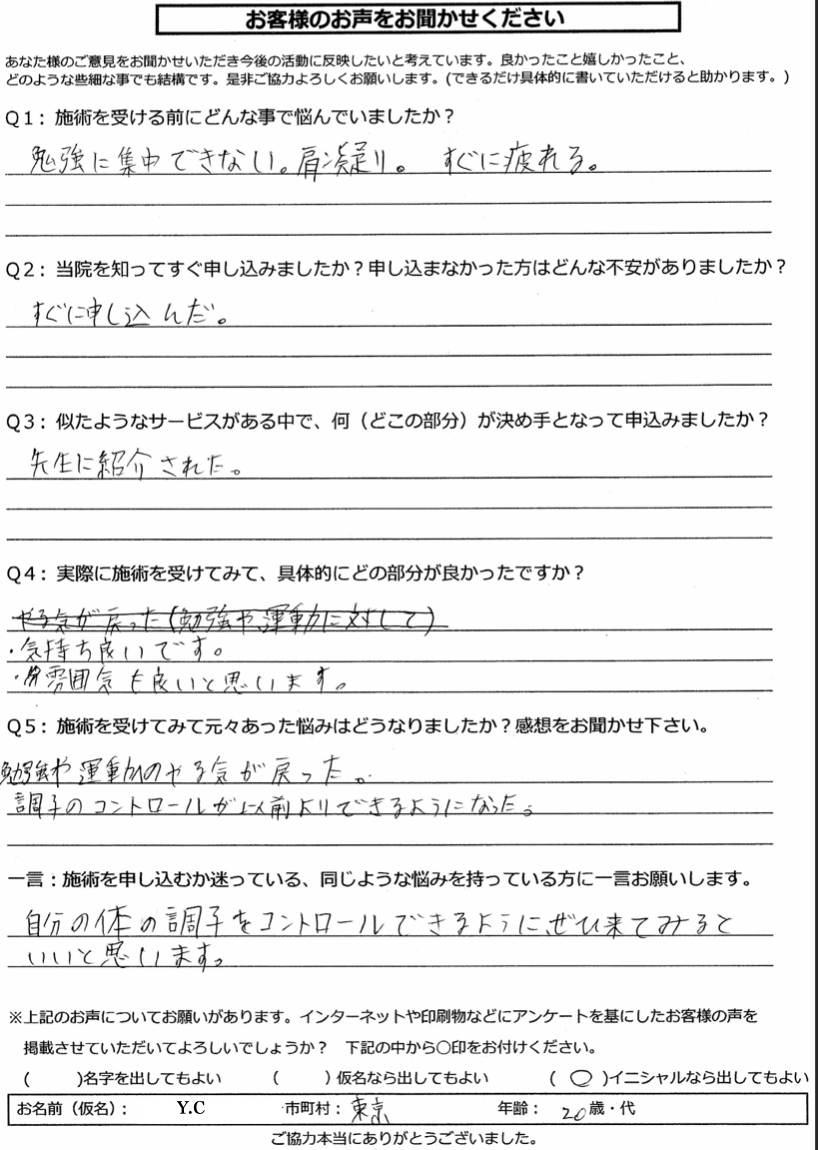 お客様のお声をお聞かせください
あなた様のご意見をお聞かせいただき今後の活動に反映したいと考えています。良かったこと嬉しかったこと、
どのような些細な事でも結構です。是非ご協力よろしくお願いします。(できるだけ具体的に書いていただけると助かります。)
Q1：施術を受ける前にどんな事で悩んでいましたか？
勉強に集中できない。肩凝り。 すぐに疲れる。
Q2：当院を知ってすぐ申し込みましたか？申し込まなかった方はどんな不安がありましたか？
すぐに申し込んだ。
Q3：似たようなサービスがある中で、何（どこの部分）が決め手となって申込みましたか？
先生に紹介された。
Q4：実際に施術を受けてみて、具体的にどの部分が良かったですか？
やる気が戻った(勉強や運動に対して)
・気持ち良いです。
・雰囲気も良いと思います。
Q5：施術を受けてみて元々あった悩みはどうなりましたか？感想をお聞かせ下さい。
勉強や運動のやる気が戻った。
調子のコントロールが以前よりできるようになった。
一言：施術を申し込むか迷っている、同じような悩みを持っている方に一言お願いします。
自分の体の調子をコントロールできるようにぜひ来てみると
いいと思います。
※上記のお声についてお願いがあります。インターネットや印刷物などにアンケートを基にしたお客様の声を
掲載させていただいてよろしいでしょうか？ 下記の中から〇印をお付けください。
( )名字を出してもよい ( )仮名なら出してもよい (〇)イニシャルなら出してもよい
お名前（仮名）： Y.C 市町村： 東京 年齢： 20歳・代
ご協力本当にありがとうございました。